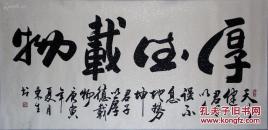 厚德載物
天行健
君子以自
强不息
地勢坤
君子
以厚
德載
物
庚寅
年
夏月